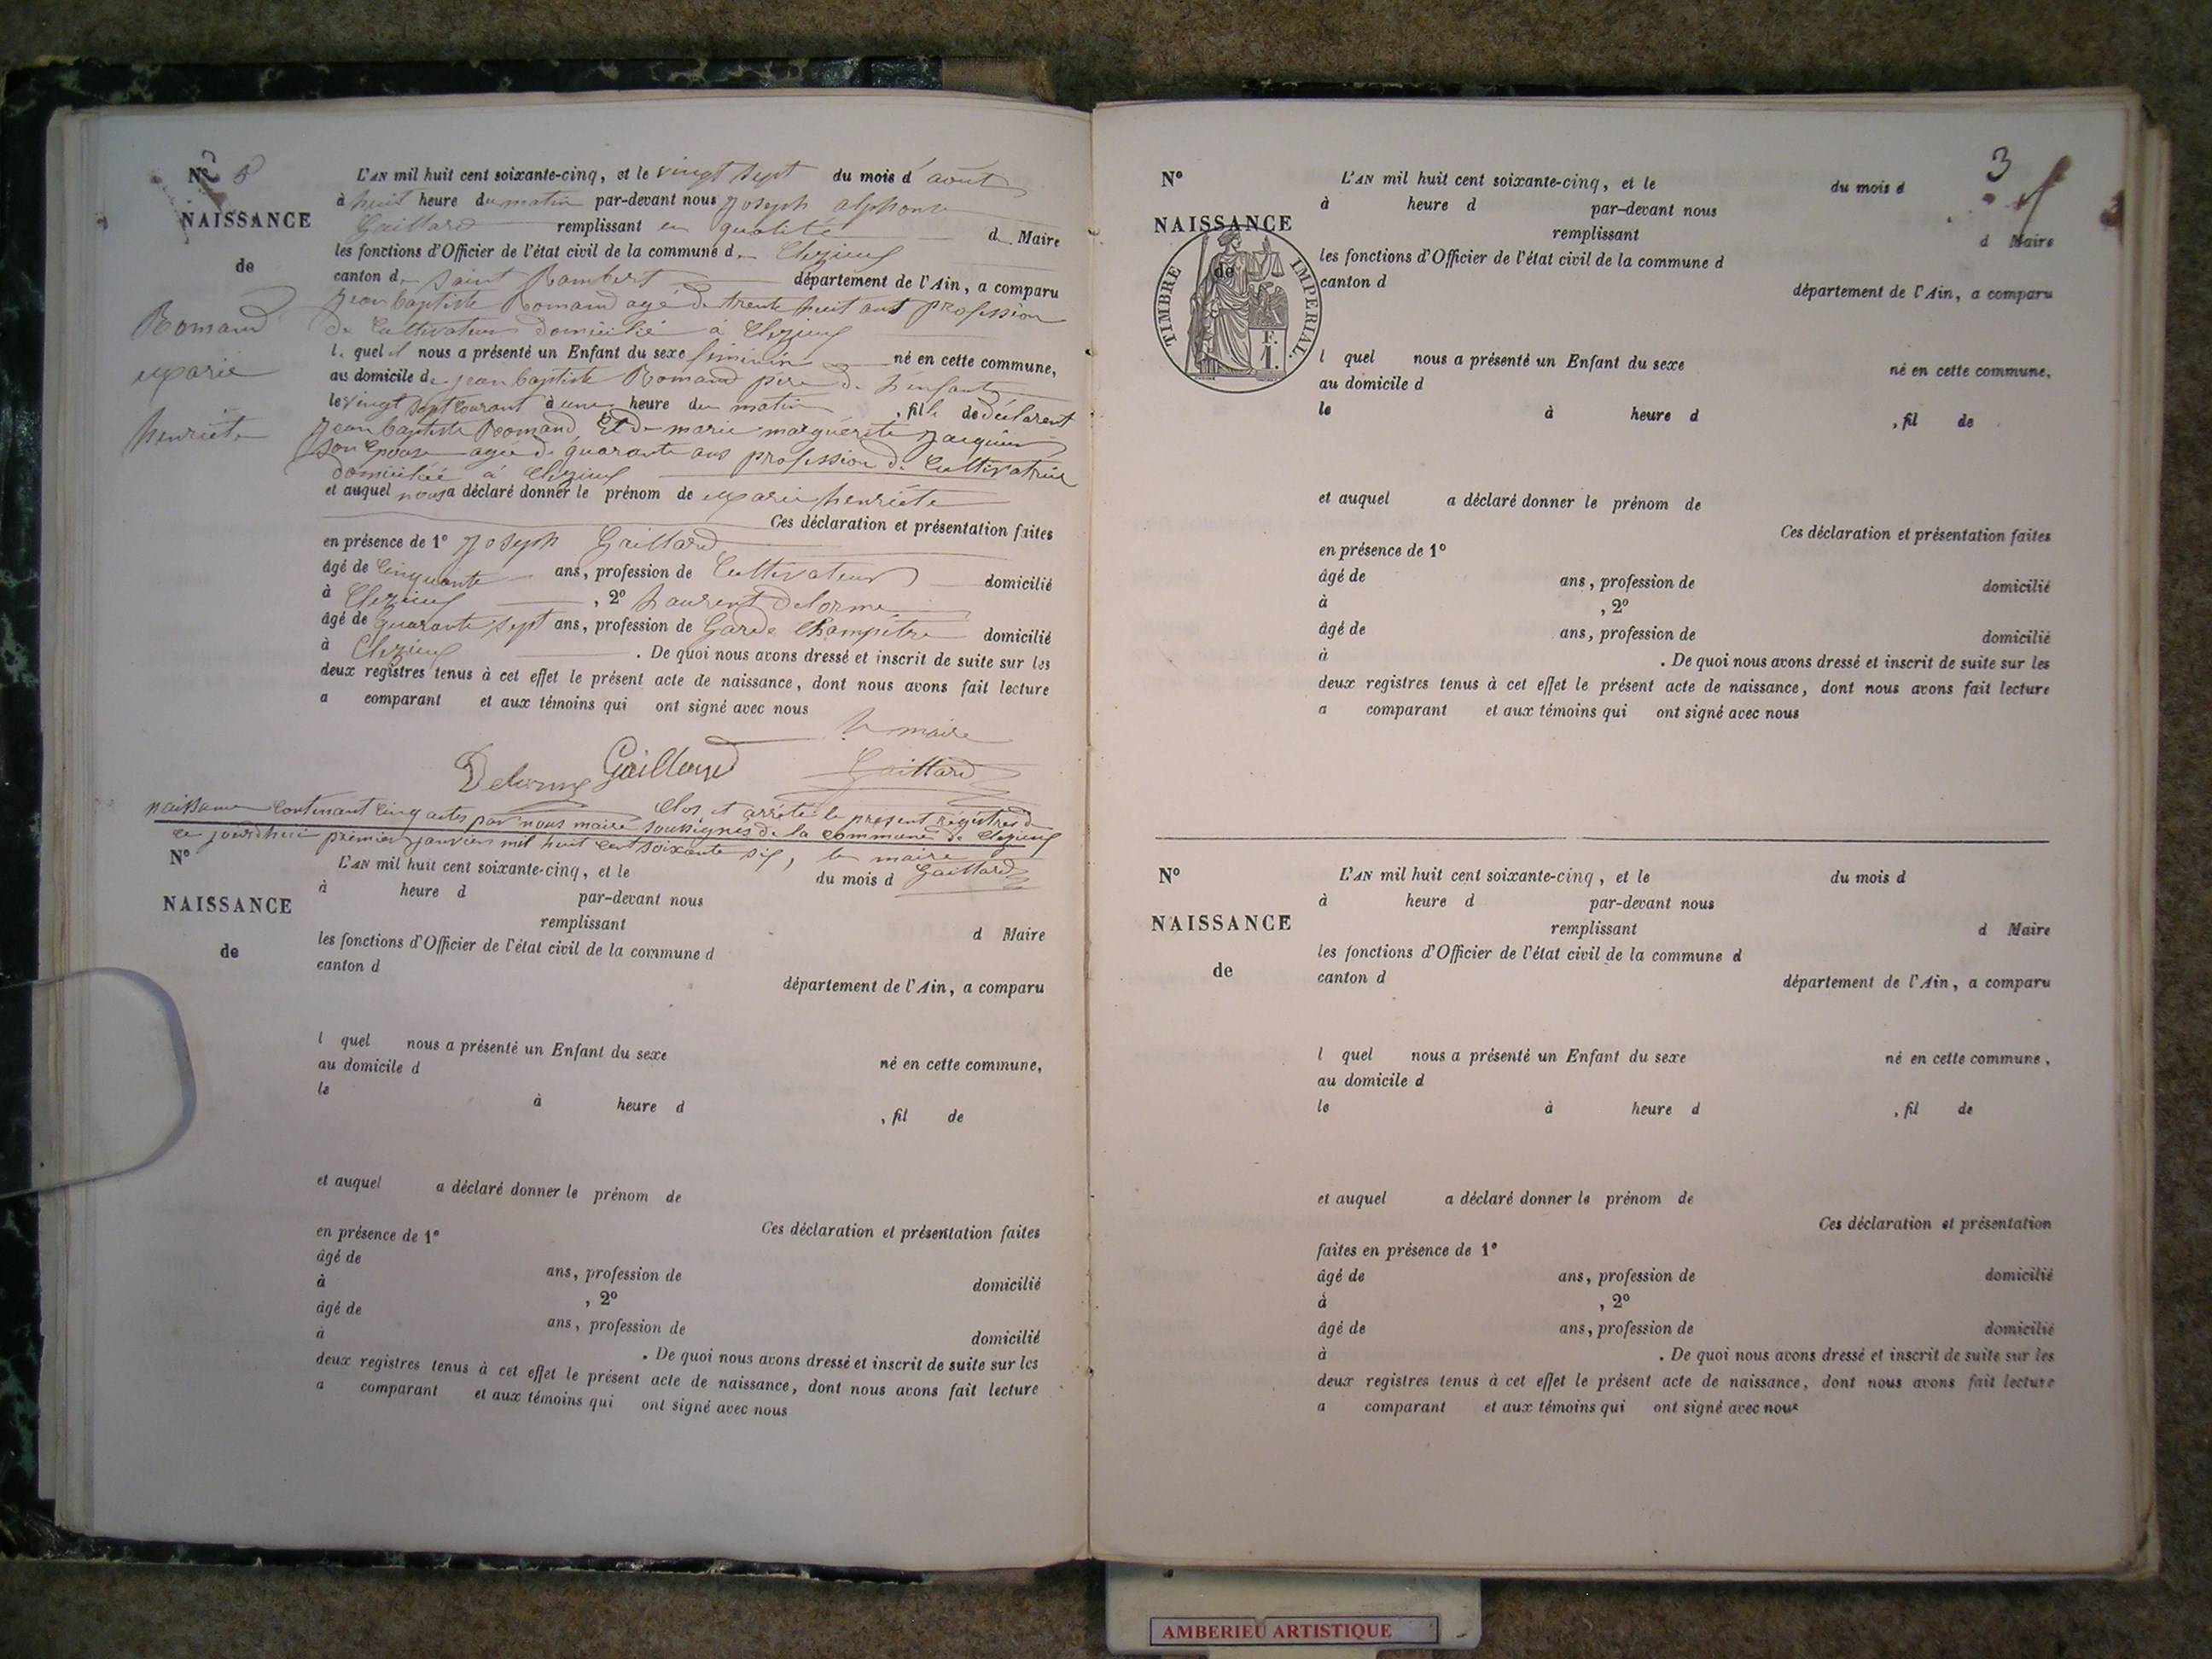 N° 8
NAISSANCE
de
Romand
Marie
henriéte
L'AN mil huit cent soixante-cinq, et le vingt sept du mois d'août
à huit heure du matin par-devant nous Joseph alphonse
Gaillard remplissant en qualité d Maire
les fonctions d'Officier de l'état civil de la commune d Cleyzieu
canton d Saint Rambert département de l'Ain, a comparu
Jean baptiste Romand age de trente huit ans profession
de Cultivateur domicilié à Cleyzieu
l quel il nous a présenté un Enfant du sexe féminin né en cette commune,
au domicile de jean baptiste Romand père de l'enfant
le vingt sept courant à une heure du matin, fille de déclarent
Jean baptiste Romand Et de marie marguérite Jacquin
son Epouse agée de quarante ans profession de Cultivatrice
domiciliée à Cleyzieu
et auquel nous a déclaré donner le prénom de Marie henriéte
Ces déclaration et présentation faites
en présence de 1° Joseph Gaillard
âgé de Cinquante ans, profession de Cultivateur domicilié
à Cleyzieu, 2° Laurent Delorme
âgé de quarante sept ans, profession de Garde Champêtre domicilié
à Cleyzieu. De quoi nous avons dressé et inscrit de suite sur les
deux registres tenus à cet effet le présent acte de naissance, dont nous avons fait lecture
a comparant et aux témoins qui ont signé avec nous
le maire
Delorme Gaillard Gaillard
Clos et arrété le présent régistres de
naissance Contenant Cinq actes par nous maire soussignés de la commune de Cleyzieu
ce jourdhui premier janvier mil huit cent soixante six, le maire
Gaillard
N°
NAISSANCE
de
L'AN mil huit cent soixante-cinq, et le du mois d
à heure d par-devant nous
remplissant d Maire
les fonctions d'Officier de l'état civil de la commune d
canton d département de l'Ain, a comparu
l quel nous a présenté un Enfant du sexe né en cette commune,
au domicile d
le à heure d , fil de
et auquel a déclaré donner le prénom de
Ces déclaration et présentation faites
en présence de 1°
âgé de ans, profession de domicilié
à , 2°
âgé de ans, profession de domicilié
à . De quoi nous avons dressé et inscrit de suite sur les
deux registres tenus à cet effet le présent acte de naissance, dont nous avons fait lecture
a comparant et aux témoins qui ont signé avec nous
3
N°
NAISSANCE
de
TIMBRE IMPERIAL
F.
1.
L'AN mil huit cent soixante-cinq, et le du mois d
à heure d par-devant nous
remplissant d Maire
les fonctions d'Officier de l'état civil de la commune d
canton d département de l'Ain, a comparu
l quel nous a présenté un Enfant du sexe né en cette commune,
au domicile d
le à heure d , fil de
et auquel a déclaré donner le prénom de
Ces déclaration et présentation faites
en présence de 1°
âgé de ans, profession de domicilié
à , 2°
âgé de ans, profession de domicilié
à . De quoi nous avons dressé et inscrit de suite sur les
deux registres tenus à cet effet le présent acte de naissance, dont nous avons fait lecture
a comparant et aux témoins qui ont signé avec nous
N°
NAISSANCE
de
L'AN mil huit cent soixante-cinq, et le du mois d
à heure d par-devant nous
remplissant d Maire
les fonctions d'Officier de l'état civil de la commune d
canton d département de l'Ain, a comparu
l quel nous a présenté un Enfant du sexe né en cette commune,
au domicile d
le à heure d , fil de
et auquel a déclaré donner le prénom de
Ces déclaration et présentation
faites en présence de 1°
âgé de ans, profession de domicilié
à , 2°
âgé de ans, profession de domicilié
à . De quoi nous avons dressé et inscrit de suite sur les
deux registres tenus à cet effet le présent acte de naissance, dont nous avons fait lecture
a comparant et aux témoins qui ont signé avec nous
AMBERIEU ARTISTIQUE